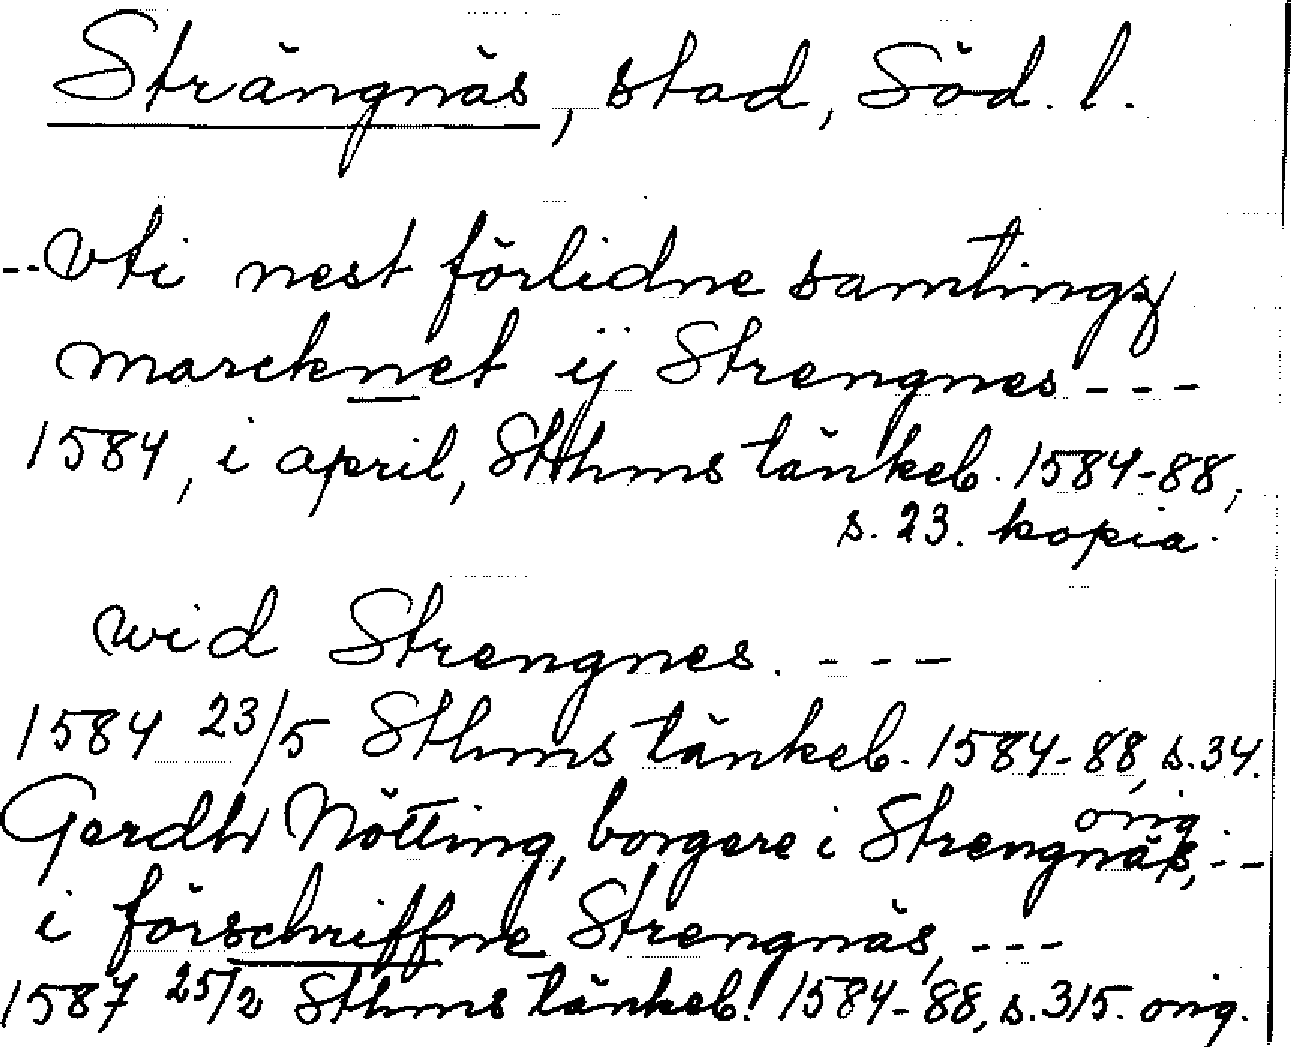 Strängnäs, stad, Söd. l.
--Vti nest förlidne samtings
marcknet ij Strengnes ---
1584, i april, Sthms tänkeb. 1584-88,
s. 23. kopia.
wid Strengnes. ---
1584 23/5 Sthms tänkeb. 1584-88, s. 34.
orig.
Gerdh Nötting, borgere i Strengnäs, --
i förschriffne Strengnäs, ---
1587 25/2 Sthms tänkeb. 1584-88, s. 315. orig.